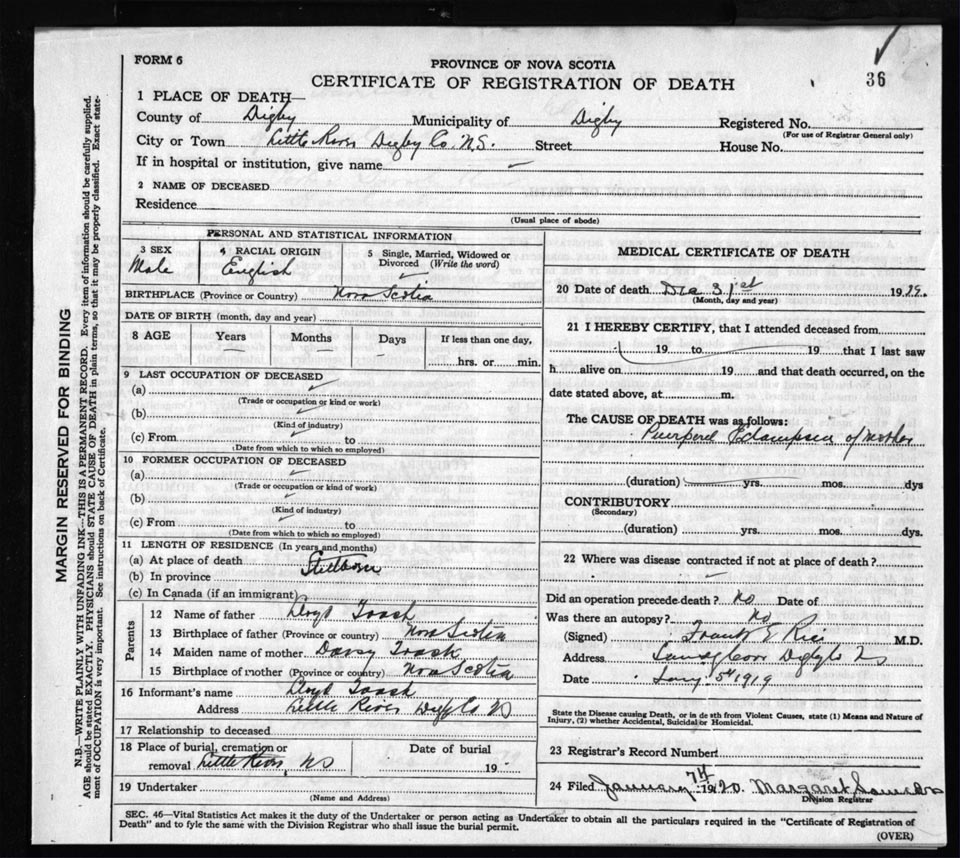 FORM 6
PROVINCE OF NOVA SCOTIA
36
CERTIFICATE OF REGISTRATION OF DEATH
1 PLACE OF DEATH—
County of Digby Municipality of Digby Registered No.
(For use of Registrar General only)
City or Town Little River Digby Co. N.S. Street House No.
If in hospital or institution, give name
2 NAME OF DECEASED
Residence
(Usual place of abode)
PERSONAL AND STATISTICAL INFORMATION
3 SEX
Male
4 RACIAL ORIGIN
English
5 Single, Married, Widowed or Divorced (Write the word)
BIRTHPLACE (Province or Country) Nova Scotia
DATE OF BIRTH (month, day and year)
8 AGE Years Months Days If less than one day,
hrs. or min.
9 LAST OCCUPATION OF DECEASED
(a)
(Trade or occupation or kind or work)
(b)
(Kind of industry)
(c) From to
(Date from which to which so employed)
10 FORMER OCCUPATION OF DECEASED
(a)
(Trade or occupation or kind of work)
(b)
(Kind of industry)
(c) From to
(Date from which to which so employed)
11 LENGTH OF RESIDENCE (In years and months)
(a) At place of death Stillborn
(b) In province
(c) In Canada (if an immigrant)
Parents
12 Name of father Lloyd Trask
13 Birthplace of father (Province or country) Nova Scotia
14 Maiden name of mother Trask
15 Birthplace of mother (Province or country) Nova Scotia
16 Informant's name Lloyd Trask
Address Little River Digby Co NS
17 Relationship to deceased
18 Place of burial, cremation or removal Little River, NS
Date of burial
19
19 Undertaker
(Name and Address)
MEDICAL CERTIFICATE OF DEATH
20 Date of death Dec 31st 1919.
(Month, day and year)
21 I HEREBY CERTIFY, that I attended deceased from
19 to 19 that I last saw
h alive on 19 and that death occurred, on the
date stated above, at m.
The CAUSE OF DEATH was as follows:
Puerperal Eclampsia of mother
(duration) yrs. mos. dys
CONTRIBUTORY
(Secondary)
(duration) yrs. mos. dys.
22 Where was disease contracted if not at place of death?
Did an operation precede death? No Date of
Was there an autopsy? No
(Signed) Frank E Rice M.D.
Address Digby NS
Date Jany 5th 1919
State the Disease causing Death, or in death from Violent Causes, state (1) Means and Nature of Injury, (2) whether Accidental, Suicidal or Homicidal.
23 Registrar's Record Number
24 Filed January 7th 1920. Margaret
Division Registrar
SEC. 46—Vital Statistics Act makes it the duty of the Undertaker or person acting as Undertaker to obtain all the particulars required in the "Certificate of Registration of
Death" and to fyle the same with the Division Registrar who shall issue the burial permit.
(OVER)
MARGIN RESERVED FOR BINDING
N.B.—WRITE PLAINLY WITH UNFADING INK—THIS IS A PERMANENT RECORD. Every item of information should be carefully supplied.
AGE should be stated EXACTLY. PHYSICIANS should STATE CAUSE OF DEATH in plain terms, so that it may be properly classified. Exact state-
ment of OCCUPATION is very important. See instructions on back of Certificate.